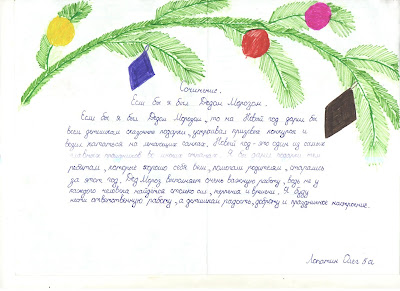 Сочинение.
Если бы я был Дедом Морозом.
Если бы я был Дедом Морозом, то на Новый год дарил бы
всем детишкам сказочные подарки, устраивал призовые конкурсы и
водил кататься на летающих санках. Новый год - это один из самых
главных праздников во многих странах. Я бы дарил подарки тем
ребятам, которые хорошо себя вели, помогали родителям, старались
за этот год. Дед Мороз выполняет очень важную работу, ведь не у
каждого человека найдётся столько сил, терпения и времени. Я буду
нести ответственную работу, а детишкам радость, доброту и праздничное настроение.
Лопатин Олег 5а